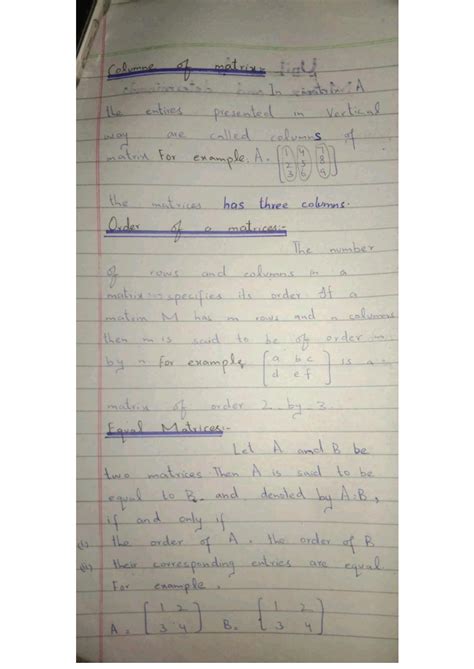 Columns of matrix:-
In matrix A
the entires presented in vertical
way are called columns of
matrix For example; A = [1 4 7
2 5 8
3 6 9]
the matrices has three columns.
Order of a matrices:-
The number
of rows and columns in a
matrix specifies its order If a
matrix M has m rows and n columns
then m is said to be of order m
by n For example, [a b c
d e f] is a
matrix of order 2 by 3.
Equal Matrices:-
Let A and B be
two matrices Then A is said to be
equal to B and denoted by A=B,
if and only if
(i) the order of A = the order of B
(ii) their corresponding entries are equal
For example,
A = [1 2
3 4] B = [1 2
3 4]